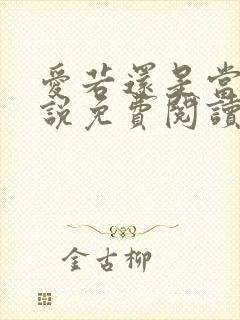 愛若還是當
說免費閱讀
金古柳